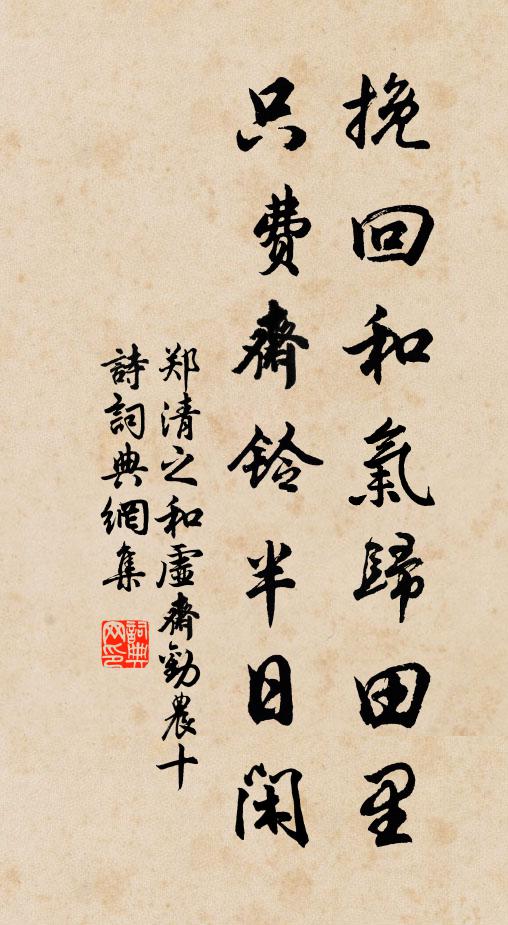 挽回和氣歸田里
只费齋鈴半日閑
郑清之和虛齋勸農十
詩詞典網集
詞典网印